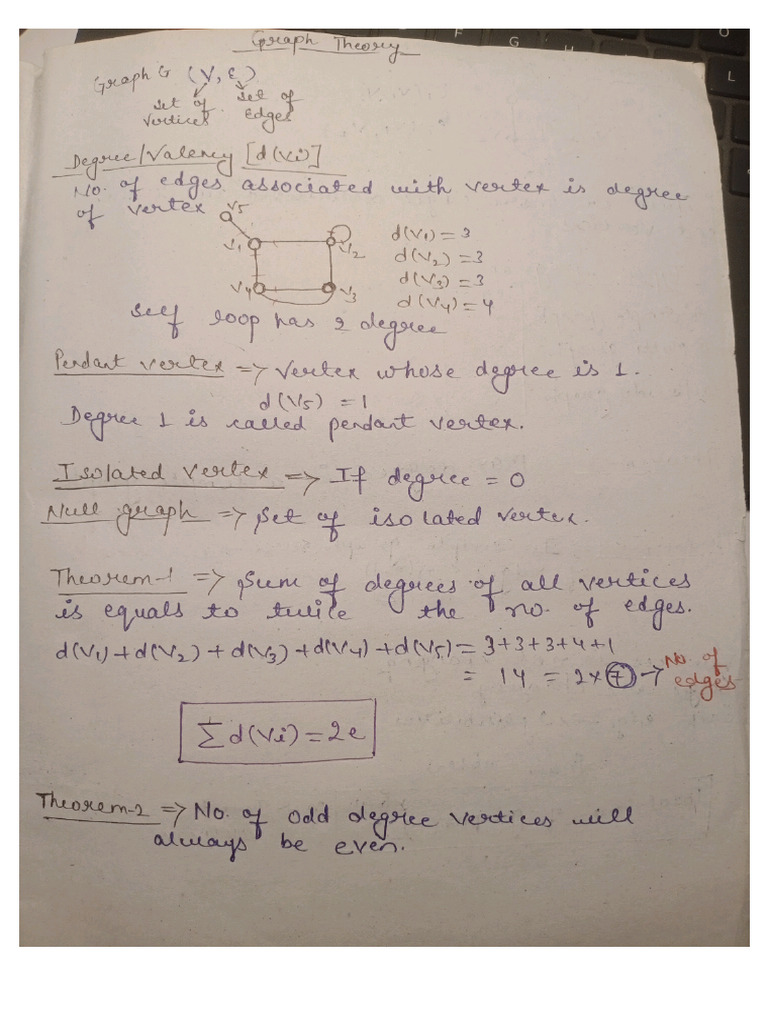 Graph Theory
Graph G (V, E)
set of vertices set of edges
Degree/Valency [d(Vi)]
No. of edges associated with vertex is degree
of vertex
V5
V1 V2
V4 V3
d(V1) = 3
d(V2) = 3
d(V3) = 3
d(V4) = 4
Self loop has 2 degree
Pendant vertex => Vertex whose degree is 1.
d(V5) = 1
Degree 1 is called pendant vertex.
Isolated vertex => If degree = 0
Null graph => Set of isolated vertex.
Theorem-1 => Sum of degrees of all vertices
is equals to twice the no. of edges.
d(V1) + d(V2) + d(V3) + d(V4) + d(V5) = 3+3+3+4+1
= 14 = 2×7 → No. of edges
Σd(Vi) = 2e
Theorem-2 => No. of odd degree vertices will
always be even.